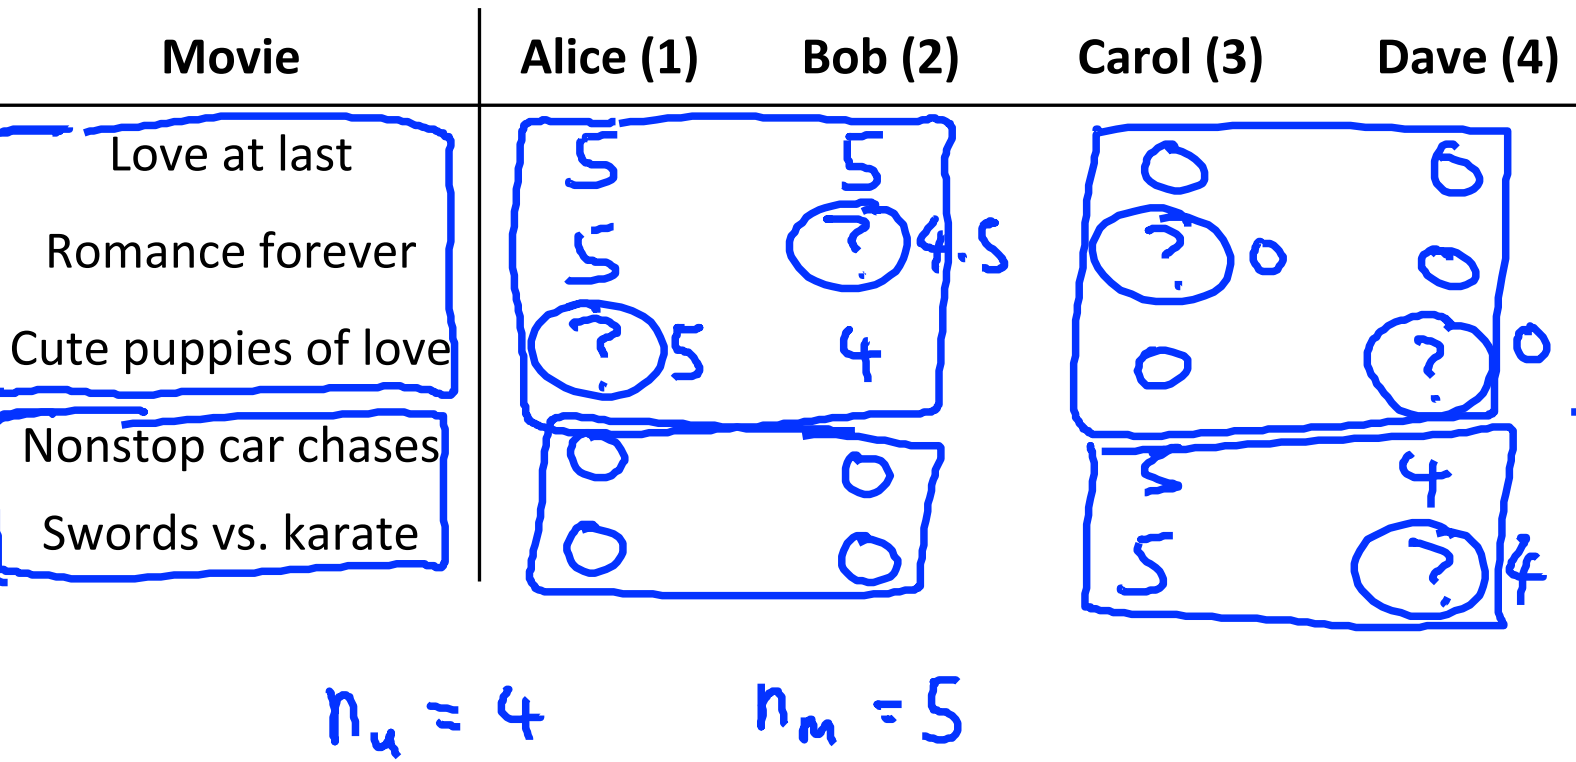 Movie Alice (1) Bob (2) Carol (3) Dave (4)
Love at last 5 5 0 0
Romance forever 5 ? 4.5 ? 0 0
Cute puppies of love ? 5 4 0 ? 0
Nonstop car chases 0 0 5 4
Swords vs. karate 0 0 5 ? 4
nu = 4 nm = 5